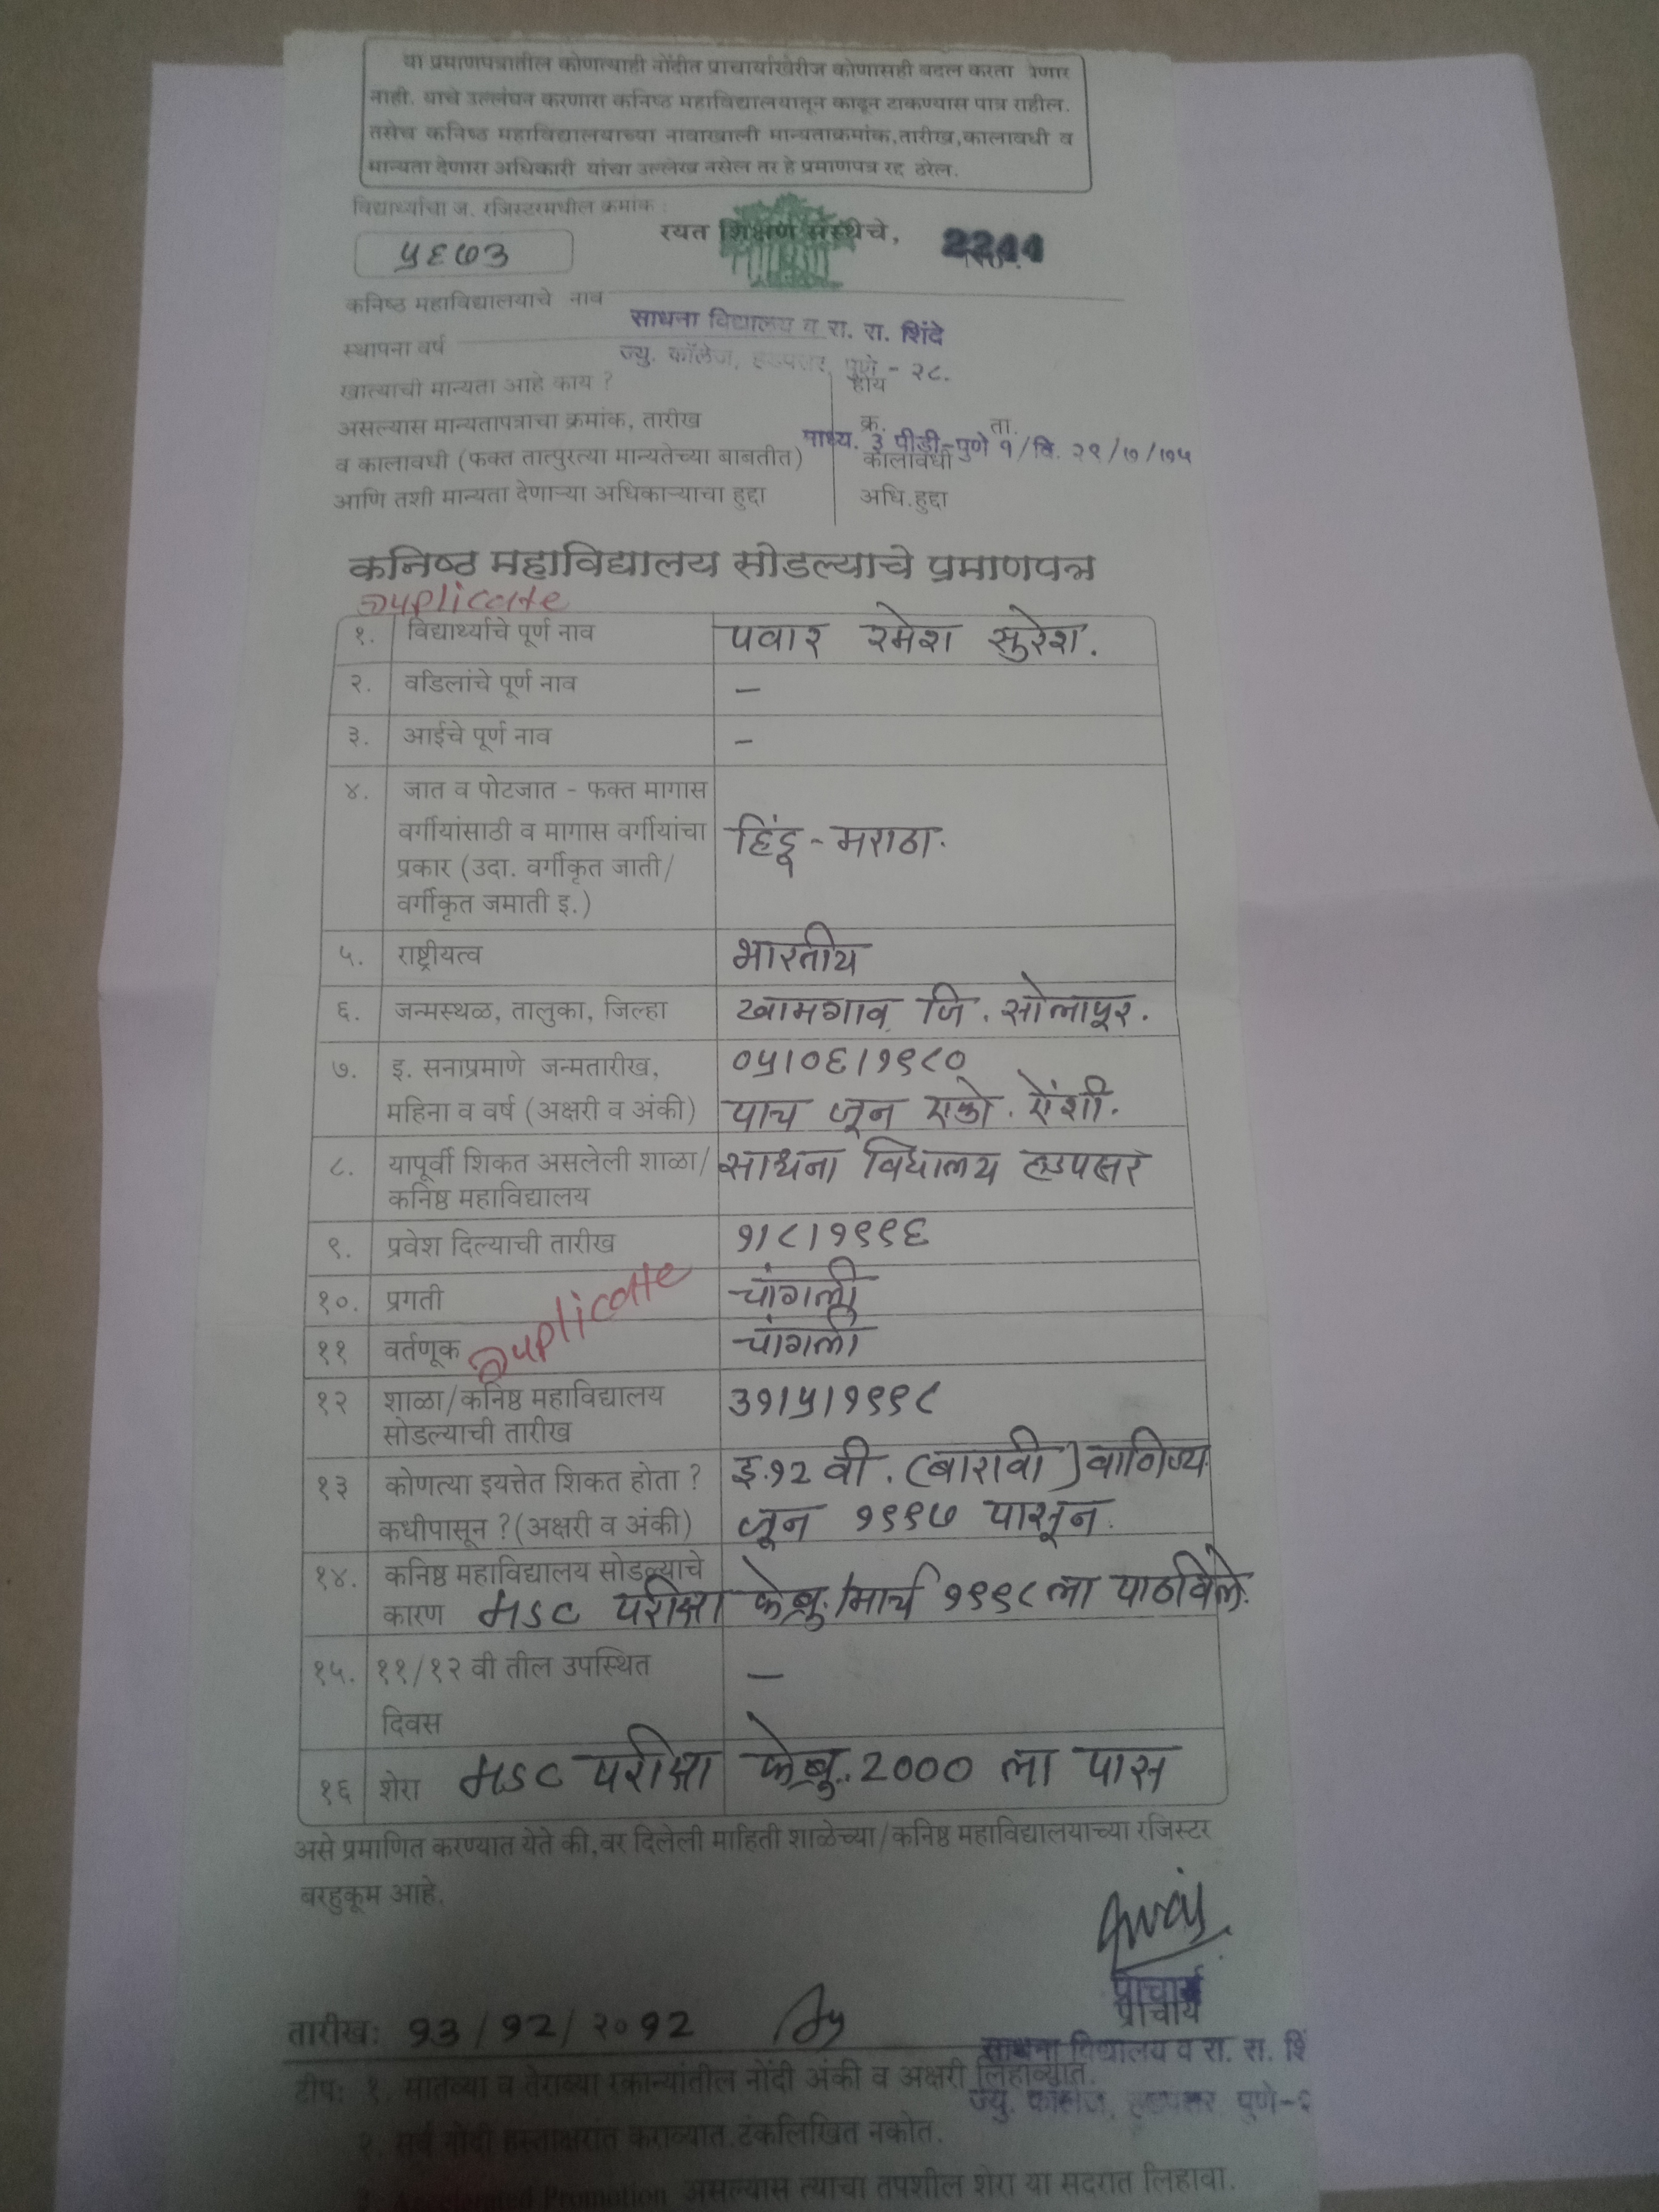 या प्रमाणपत्रातील कोणत्याही नोंदीत प्राचार्याखेरीज कोणासही बदल करता येणार
नाही. याचे उल्लंघन करणारा कनिष्ठ महाविद्यालयातून काढून टाकण्यास पात्र राहील.
तसेच कनिष्ठ महाविद्यालयाच्या नावाखाली मान्यताक्रमांक,तारीख,कालावधी व
मान्यता देणारा अधिकारी यांचा उल्लेख नसेल तर हे प्रमाणपत्र रद्द ठरेल.
विद्यार्थ्याचा ज. रजिस्टरमधील क्रमांक :
रयत शिक्षण संस्थेचे, 2244
५६७३
कनिष्ठ महाविद्यालयाचे नाव
साधना विद्यालय व रा. रा. शिंदे
स्थापना वर्ष
ज्यु. कॉलेज, हडपसर, पुणे - २८.
खात्याची मान्यता आहे काय ? होय
असल्यास मान्यतापत्राचा क्रमांक, तारीख क्र. ता.
माध्य. ३ पीडी-पुणे १/दि. २९/७/७५
व कालावधी (फक्त तात्पुरत्या मान्यतेच्या बाबतीत) कालावधी
आणि तशी मान्यता देणाऱ्या अधिकाऱ्याचा हुद्दा अधि.हुद्दा
कनिष्ठ महाविद्यालय सोडल्याचे प्रमाणपत्र
Duplicate
१. विद्यार्थ्याचे पूर्ण नाव पवार रमेश सुरेश.
२. वडिलांचे पूर्ण नाव –
३. आईचे पूर्ण नाव –
४. जात व पोटजात - फक्त मागास
वर्गीयांसाठी व मागास वर्गीयांचा हिंदू - मराठा.
प्रकार (उदा. वर्गीकृत जाती/
वर्गीकृत जमाती इ.)
५. राष्ट्रीयत्व भारतीय
६. जन्मस्थळ, तालुका, जिल्हा खामगाव जि. सोलापूर.
७. इ. सनाप्रमाणे जन्मतारीख, ०५।०६।१९८०
महिना व वर्ष (अक्षरी व अंकी) पाच जून एको. ऐंशी.
८. यापूर्वी शिकत असलेली शाळा/ साधना विद्यालय हडपसर
कनिष्ठ महाविद्यालय
९. प्रवेश दिल्याची तारीख १।८।१९९६
१०. प्रगती चांगली
११ वर्तणूक Duplicate चांगली
१२ शाळा/कनिष्ठ महाविद्यालय ३१।५।१९९८
सोडल्याची तारीख
१३ कोणत्या इयत्तेत शिकत होता ? इ.१२ वी. (बारावी) वाणिज्य
कधीपासून ?(अक्षरी व अंकी) जून १९९७ पासून.
१४. कनिष्ठ महाविद्यालय सोडल्याचे
कारण HSC परीक्षा फेब्रु./मार्च १९९८ ला पाठविले.
१५. ११/१२ वी तील उपस्थित –
दिवस
१६ शेरा HSC परीक्षा फेब्रु. 2000 ला पास
असे प्रमाणित करण्यात येते की,वर दिलेली माहिती शाळेच्या/कनिष्ठ महाविद्यालयाच्या रजिस्टर
बरहुकूम आहे.
प्राचार्य
प्राचार्य
तारीख: १३/१२/२०१२
साधना विद्यालय व रा. रा. शिं
टीप: १. सातव्या व तेराव्या रकान्यांतील नोंदी अंकी व अक्षरी लिहाव्यात.
ज्यु. कॉलेज, हडपसर पुणे-२
२. सर्व नोंदी हस्ताक्षरात कराव्यात टंकलिखित नकोत.
३. Accelerated Promotion असल्यास त्याचा तपशील शेरा या सदरात लिहावा.